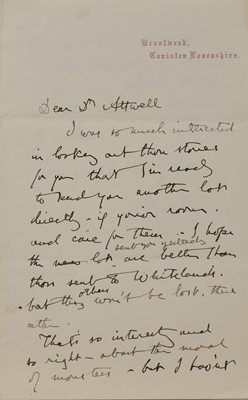 Brantwood,
Coniston Lancashire.
Dear Dr Attwell
I was so much interested
in looking out those stones
for you that I'm ready
to send you another lot
directly - if you've room.
and care for them - I hope
sent you yesterday
the new lot are better than
those sent to Whitelands.
others
- but they won't be lost, the
That's so interesting and
so right - about the moral
of monsters - but I hav'nt